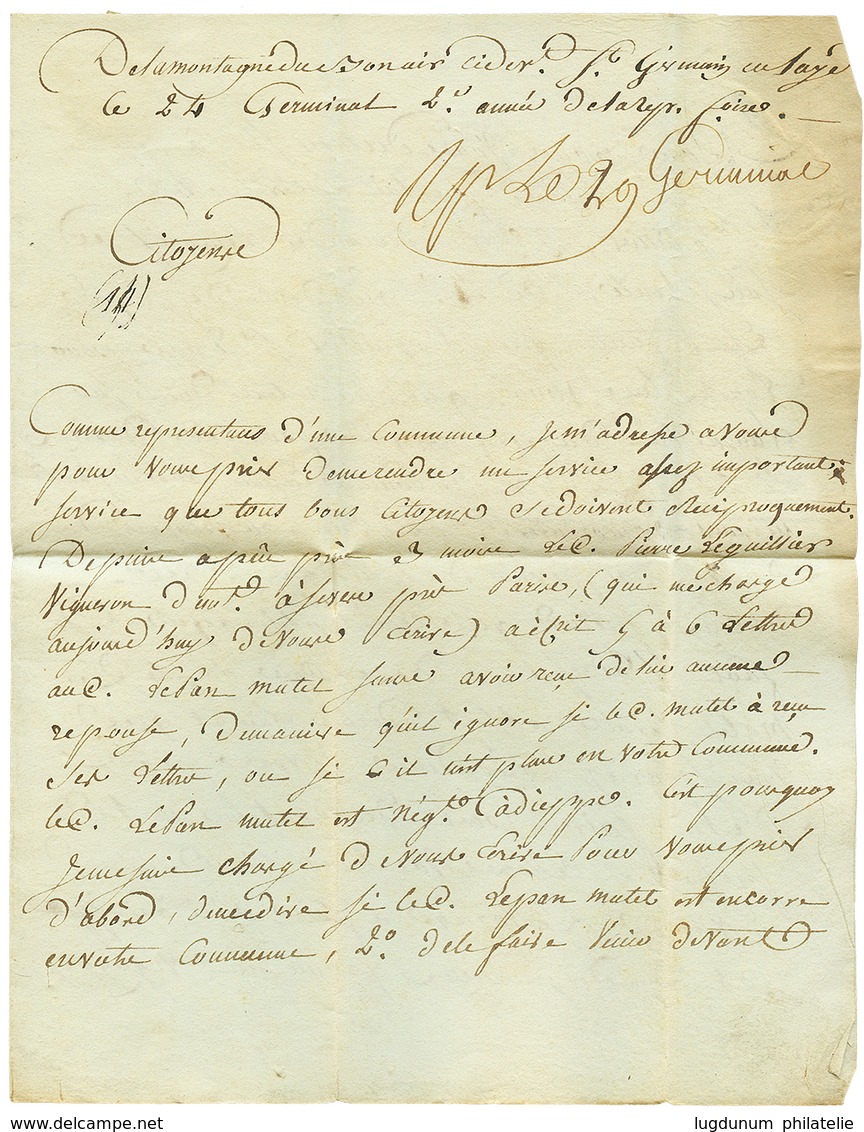 De la montagne du Bon air cidev.t S.t Germain en laye
le 24 Germinal 2.e année de la Rep. fçaise.
Rp Le 29 Germinal
Citoyens
Comme representans d'une Commune, Je m'adresse a vous
pour vous prier de me rendre un service assez important;
service que tous bons Citoyens se doivent Réciproquement.
Depuis a peu près 3 mois Le C. Pierre Lequillier
Vigneron dem.t à sevres près Paris, (qui me charge
aujourd'huy de vous Ecrire) a ecrit 5 à 6 Lettres
au C. LePan matet sans avoir reçu de lui aucune
reponse, de maniere qu'il ignore si le C. matet à reçu
ses Lettres, ou s'il n'est plus en votre Commune.
le C. LePan matet est Nég.t à dieppe. C'est pourquoy
Je me suis chargé de vous Ecrire Pour vous prier
d'abord, de me dire si le C. Lepan matet est encorre
en votre Commune, 2.o de le faire Venir devant
lugdunum philatelie